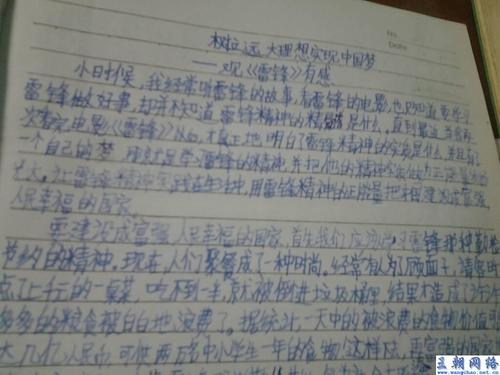 No.
Date
树立远大理想实现中国梦
——观《雷锋》有感
小时候,我经常听雷锋的故事,看雷锋的电影,也只知道要学习
雷锋做好事,却并不知道雷锋精神的精髓是什么。直到最近
次看完电影《雷锋》以后,才真正地明白了雷锋精神的实质是什么,并且有了
一个自己的梦,那就是学习雷锋的精神,并把他的精神
让雷锋精神实践在生活中,用雷锋精神的正能量把祖国建设成富强、
人民幸福的国家。
要建设成富强、人民幸福的国家,首先我们应该学习雷锋那种勤俭
节约的精神。现在人们聚餐成了一种时尚,经常有人为了顾面子,请客时
点了上千元的一桌菜,吃不到一半,就被倒进垃圾桶里,结果造成了许许
多多的粮食被白白地浪费了。据统计,一天中的被浪费的食物价值
大几亿人民币,可供两百名中小学生一年的食物,这样下去,再富强的国家
王朝网络
www.wangchao.net.cn